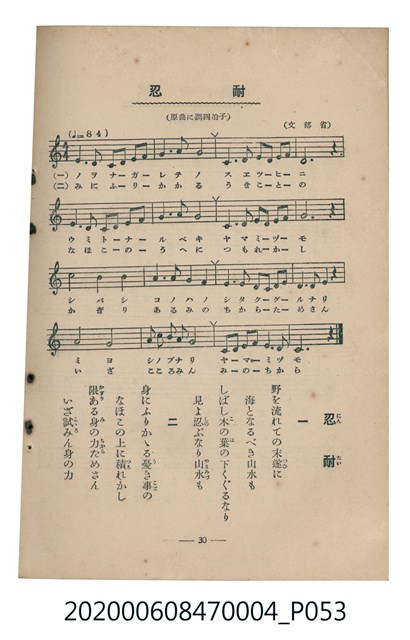 忍耐
(原曲に調四治子)
(文部省)
(♩=84)
(一)ノヲナーガーレテノ スヱツーヒーニ
(二)みにふーりーかかる うきこーとーの
ウミトーナールベキ ヤマミーヅーモ
なほこーのーうへに つもれーかーし
シバシ コノハノシタクーグールナリ
かぎり あるみのちからーためさん
ミヨ シノブナリ ヤーマーミヅモ
いざ こころみん みーのーちから
忍耐
にんたい
一
野を流れての末遂に
海となるべき山水も
しばし木の葉の下くぐるなり
見よ忍ぶなり山水も
二
身にふりかゝる憂き事の
なほこの上に積れかし
限ある身の力ためさん
いざ試みん身の力
— 30 —
202000608470004_P053